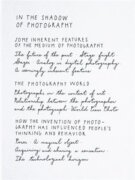 IN THE SHADOW
OF PHOTOGRAPHY
SOME INHERENT FEATURES
OF THE MEDIUM OF PHOTOGRAPHY
The future of the past Stage fright
Shape Analog vs digital photography
A seemingly inherent feature
THE PHOTOGRAPHY WORLD
Photographs in the context of art
Relationship between the photographer
and the photograph World Press Photo
HOW THE INVENTION OF PHOTO-
GRAPHY HAS INFLUENCED PEOPLE'S
THINKING AND BEHAVIOR
Form A magical object
Acquiring and sharing a sensation
The technological